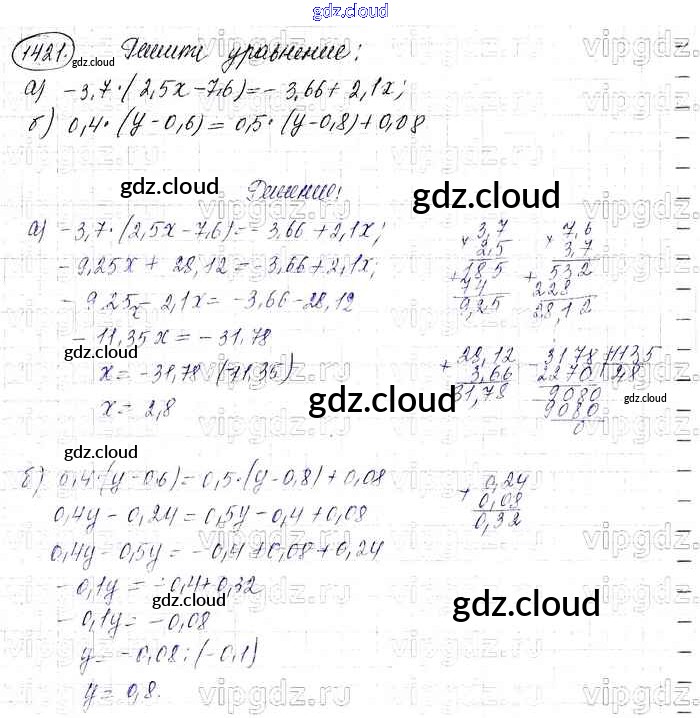 gdz.cloud
1421. Решите уравнение:
а) -3,7·(2,5x-7,6)=-3,66+2,1x;
б) 0,4·(y-0,6)=0,5·(y-0,8)+0,08
Решение:
а) -3,7·(2,5x-7,6)=-3,66+2,1x;
-9,25x+28,12=-3,66+2,1x;
-9,25x-2,1x=-3,66-28,12
-11,35x=-31,78
x=-31,78:(-11,35)
x=2,8
× 3,7
2,5
+ 185
74
9,25
× 7,6
3,7
+ 532
228
28,12
+ 28,12
3,66
31,78
- 3178 | 1135
2270 | 2,8
- 9080
9080
0
б) 0,4·(y-0,6)=0,5·(y-0,8)+0,08
0,4y-0,24=0,5y-0,4+0,08
0,4y-0,5y=-0,4+0,08+0,24
-0,1y=-0,4+0,32
-0,1y=-0,08
y=-0,08:(-0,1)
y=0,8.
+ 0,24
0,08
0,32
gdz.cloud
gdz.cloud
gdz.cloud
gdz.cloud
gdz.cloud
gdz.cloud
gdz.cloud
gdz.cloud
gdz.cloud
vipgdz.com